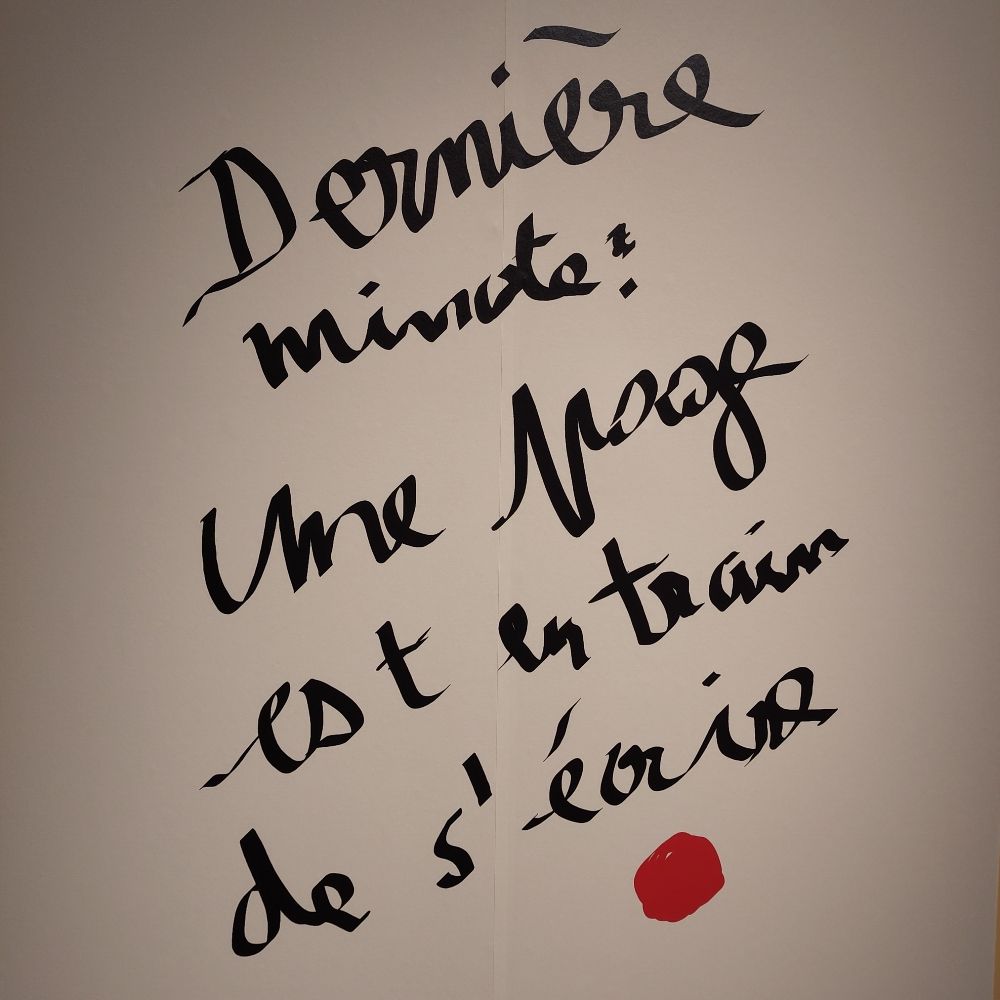 Dernière
minute :
Une page
est en train
de s'écrire